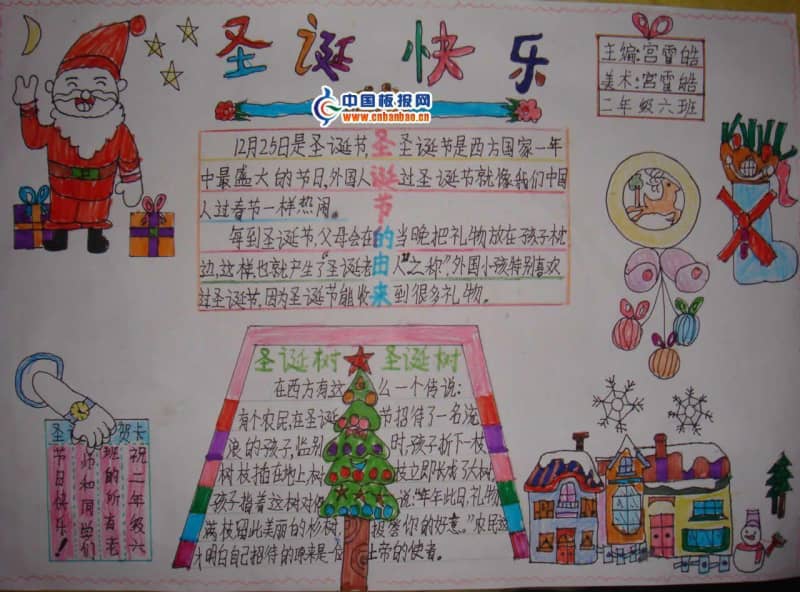 圣诞快乐
主编:宫雪皓
美术:宫雪皓
二年级六班
中国板报网
www.cnbanbao.cn
圣诞节的由来
12月25日是圣诞节,圣诞节是西方国家一年
中最盛大的节日,外国人过圣诞节就像我们中国
人过春节一样热闹。
每到圣诞节,父母会在当晚把礼物放在孩子枕
边,这样,也就产生了“圣诞老人”之称”外国小孩特别喜欢
过圣诞节,因为圣诞节能收到很多礼物。
圣诞树 圣诞树
在西方有这么一个传说:
有个农民,在圣诞节招待了一名流
浪的孩子,临别时,孩子折下一枝
树枝插在地上,树枝立即长成了大树,
孩子指着这树对他说:“年年此日,礼物
满枝,留此美丽的杉树,报答你的好意。”农民
才明白自己招待的原来是一位上帝的使者。
圣 贺卡
祝二年级六
班的所有老
师和同学们
节日快乐!